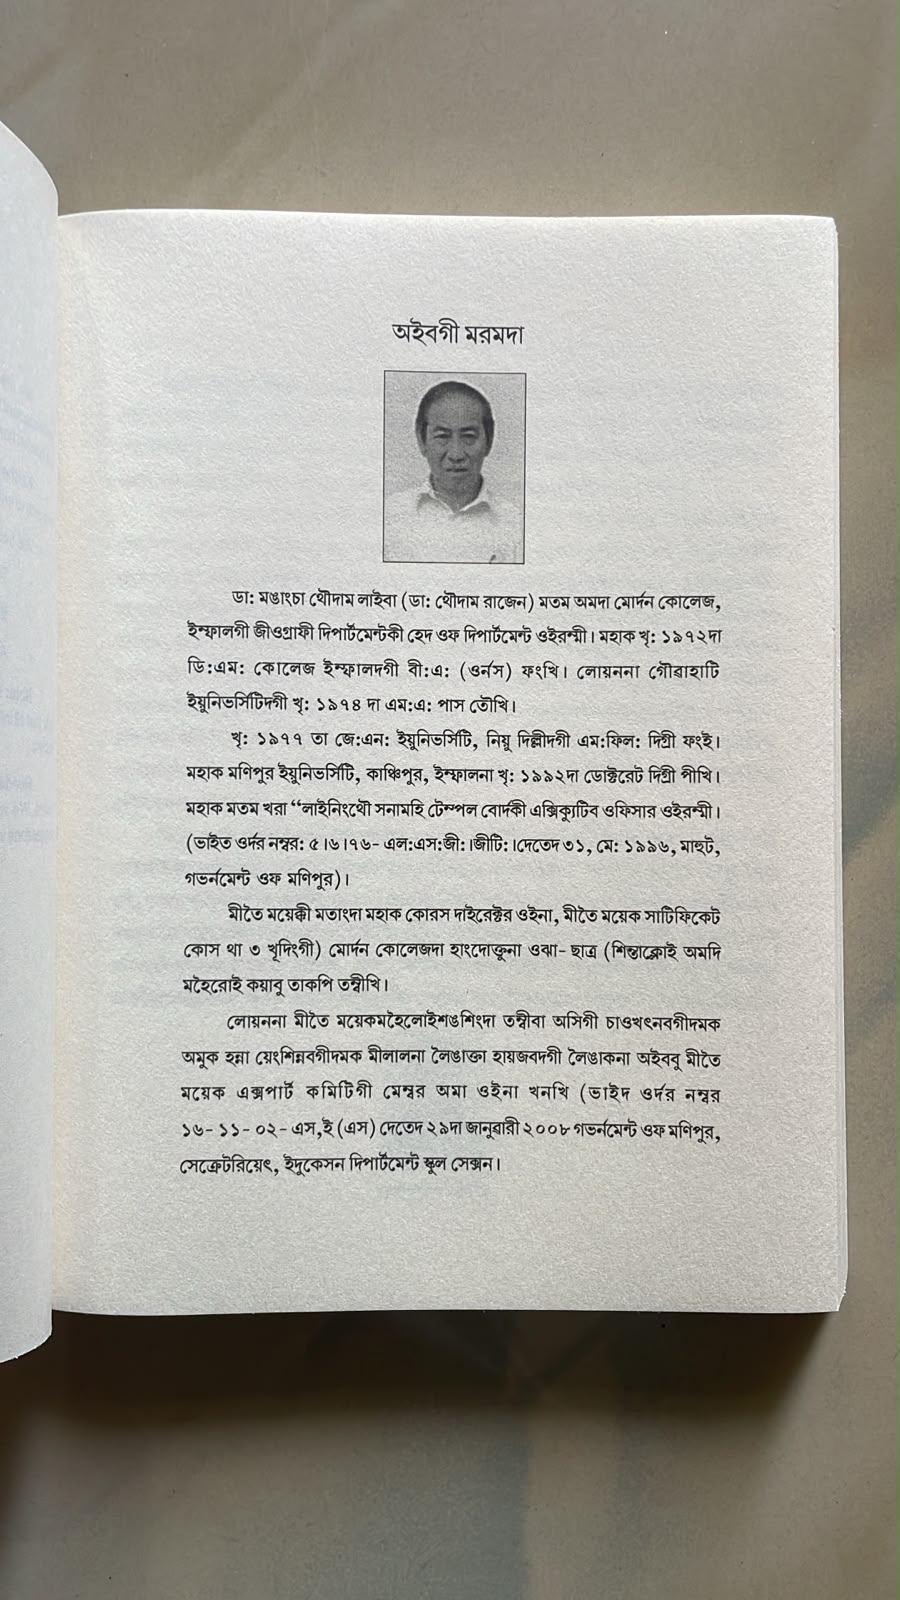 অইবগী মরমদা
ডা: মঙাংচা থৌদাম লাইবা (ডা: থৌদাম রাজেন) মতম অমদা মোর্দন কোলেজ,
ইম্ফালগী জীওগ্রাফী দিপার্টমেন্টকী হেদ ওফ দিপার্টমেন্ট ওইরম্মী। মহাক খৃ: ১৯৭২দা
ডি:এম: কোলেজ ইম্ফালদগী বী:এ: (ওর্নস) ফংখি। লোয়ননা গৌৱাহাটি
ইয়ুনিভর্সিটিদগী খৃ: ১৯৭৪ দা এম:এ: পাস তৌখি।
খৃ: ১৯৭৭ তা জে:এন: ইয়ুনিভর্সিটি, নিয়ু দিল্লীদগী এম:ফিল: দিগ্রী ফংই।
মহাক মণিপুর ইয়ুনিভর্সিটি, কাঞ্চিপুর, ইম্ফালনা খৃ: ১৯৯২দা ডোক্টরেট দিগ্রী পীখি।
মহাক মতম খরা “লাইনিংথৌ সনামহি টেম্পল বোর্দকী এক্সিক্যুটিব ওফিসার ওইরম্মী।
(ভাইত ওর্দর নম্বর: ৫।৬।৭৬- এল:এস:জী:।জীটি:।দেতেদ ৩১, মে: ১৯৯৬, মাহুট,
গভর্নমেন্ট ওফ মণিপুর)।
মীতৈ ময়েক্কী মতাংদা মহাক কোরস দাইরেক্টর ওইনা, মীতৈ ময়েক সার্টিফিকেট
কোস থা ৩ খূদিংগী) মোর্দন কোলেজদা হাংদোক্তুনা ওঝা- ছাত্র (শিন্তাক্লোই অমদি
মহৈরোই কয়াবু তাকপি তম্বীখি।
লোয়ননা মীতৈ ময়েকমহৈলোইশঙশিংদা তম্বীবা অসিগী চাওখৎনবগীদমক
অমুক হন্না য়েংশিন্নবগীদমক মীলালনা লৈঙাক্তা হায়জবদগী লৈঙাকনা অইবু মীতৈ
ময়েক এক্সপার্ট কমিটিগী মেম্বর অমা ওইনা খনখি (ভাইদ ওর্দর নম্বর
১৬- ১১- ০২- এস,ই (এস) দেতেদ ২৯দা জানুৱারী ২০০৮ গভর্নমেন্ট ওফ মণিপুর,
সেক্রেটরিয়েৎ, ইদুকেসন দিপার্টমেন্ট স্কুল সেক্সন।